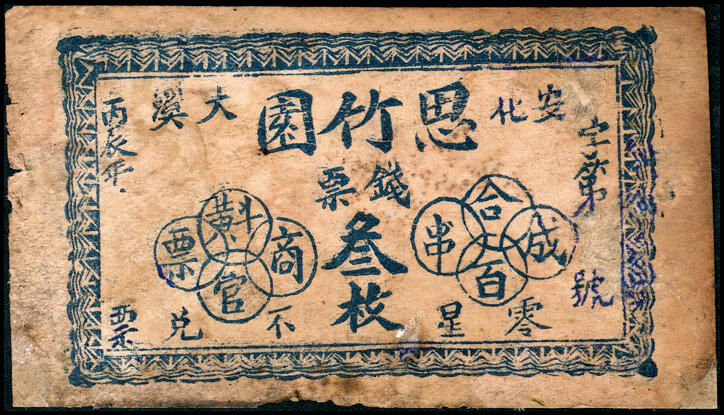 安化 思竹園 大溪
字第 號
錢票
叁枚
合百成串
斢官商票
零星不兌
丙辰年 票